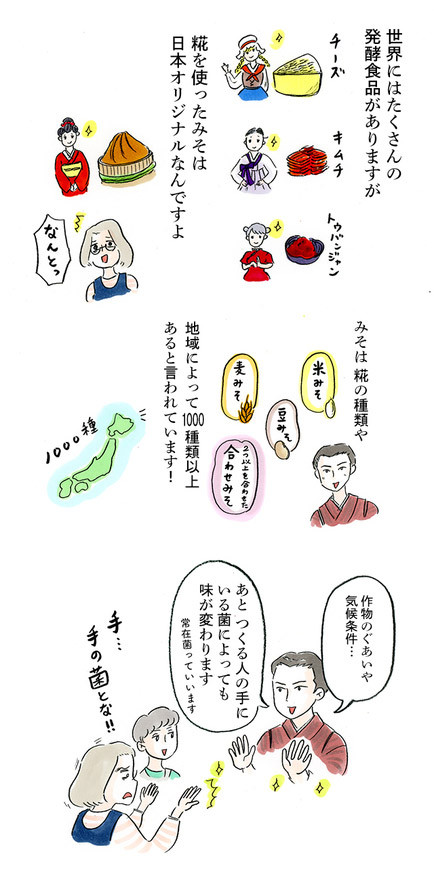 世界にはたくさんの
発酵食品がありますが
チーズ
キムチ
トウバンジャン
糀を使ったみそは
日本オリジナルなんですよ
なんとっ
みそは 糀の種類や
米みそ
豆みそ
麦みそ
2つ以上を合わせた
合わせみそ
地域によって1000種類以上
あると言われています!
1000種
作物のぐあいや
気候条件…
あと つくる人の手に
いる菌によっても
味が変わります
常在菌っていいます
手…
手の菌とな!!